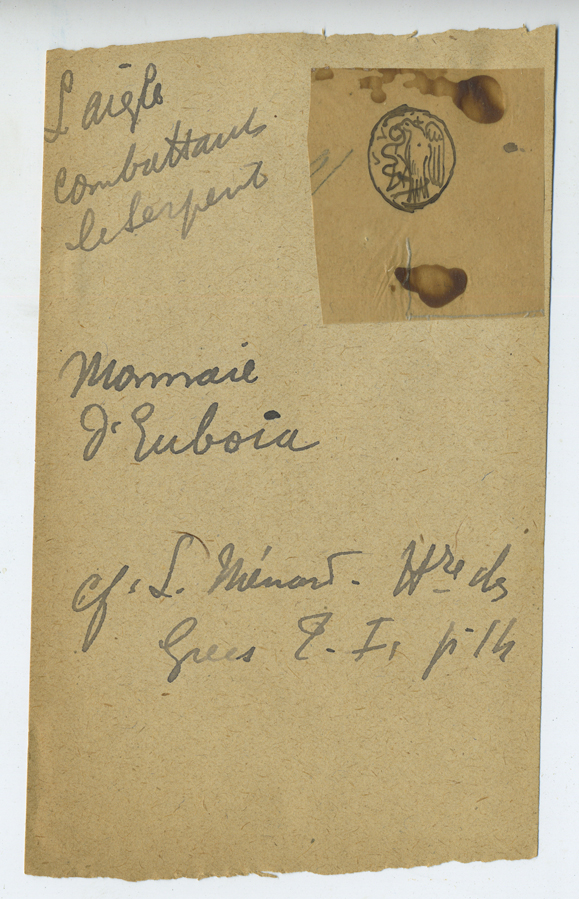 L'aigle
combattant
le Serpent
Monnaie
d'Euboia
cf. L. Ménard. Hre des
Grecs T. I, p.